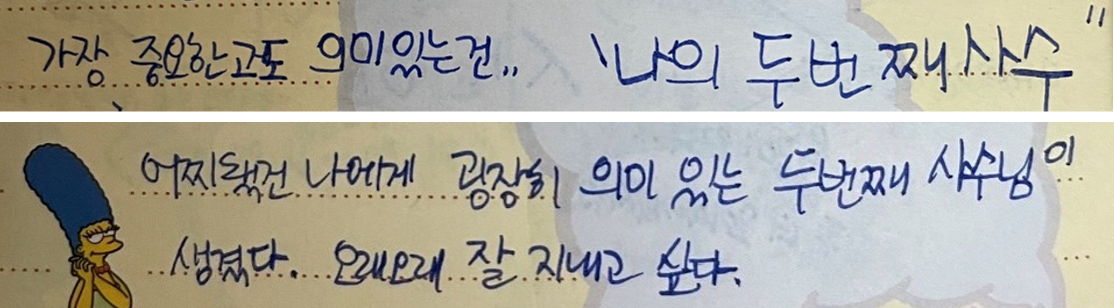 가장 중요한고도 의미있는건,, "나의 두번 째 사수"
어찌됐건 나에게 굉장히 의미 있는 두번째 사수님이
생겼다. 오래오래 잘 지내고 싶다.